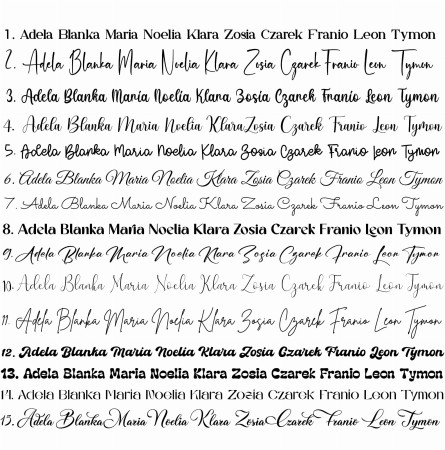 1. Adela Blanka Maria Noelia Klara Zosia Czarek Franio Leon Tymon
2. Adela Blanka Maria Noelia Klara Zosia Czarek Franio Leon Tymon
3. Adela Blanka Maria Noelia Klara Zosia Czarek Franio Leon Tymon
4. Adela Blanka Maria Noelia Klara Zosia Czarek Franio Leon Tymon
5. Adela Blanka Maria Noelia Klara Zosia Czarek Franio Leon Tymon
6. Adela Blanka Maria Noelia Klara Zosia Czarek Franio Leon Tymon
7. Adela Blanka Maria Noelia Klara Zosia Czarek Franio Leon Tymon
8. Adela Blanka Maria Noelia Klara Zosia Czarek Franio Leon Tymon
9. Adela Blanka Maria Noelia Klara Zosia Czarek Franio Leon Tymon
10. Adela Blanka Maria Noelia Klara Zosia Czarek Franio Leon Tymon
11. Adela Blanka Maria Noelia Klara Zosia Czarek Franio Leon Tymon
12. Adela Blanka Maria Noelia Klara Zosia Czarek Franio Leon Tymon
13. Adela Blanka Maria Noelia Klara Zosia Czarek Franio Leon Tymon
14. Adela Blanka Maria Noelia Klara Zosia Czarek Franio Leon Tymon
15. Adela Blanka Maria Noelia Klara Zosia Czarek Franio Leon Tymon